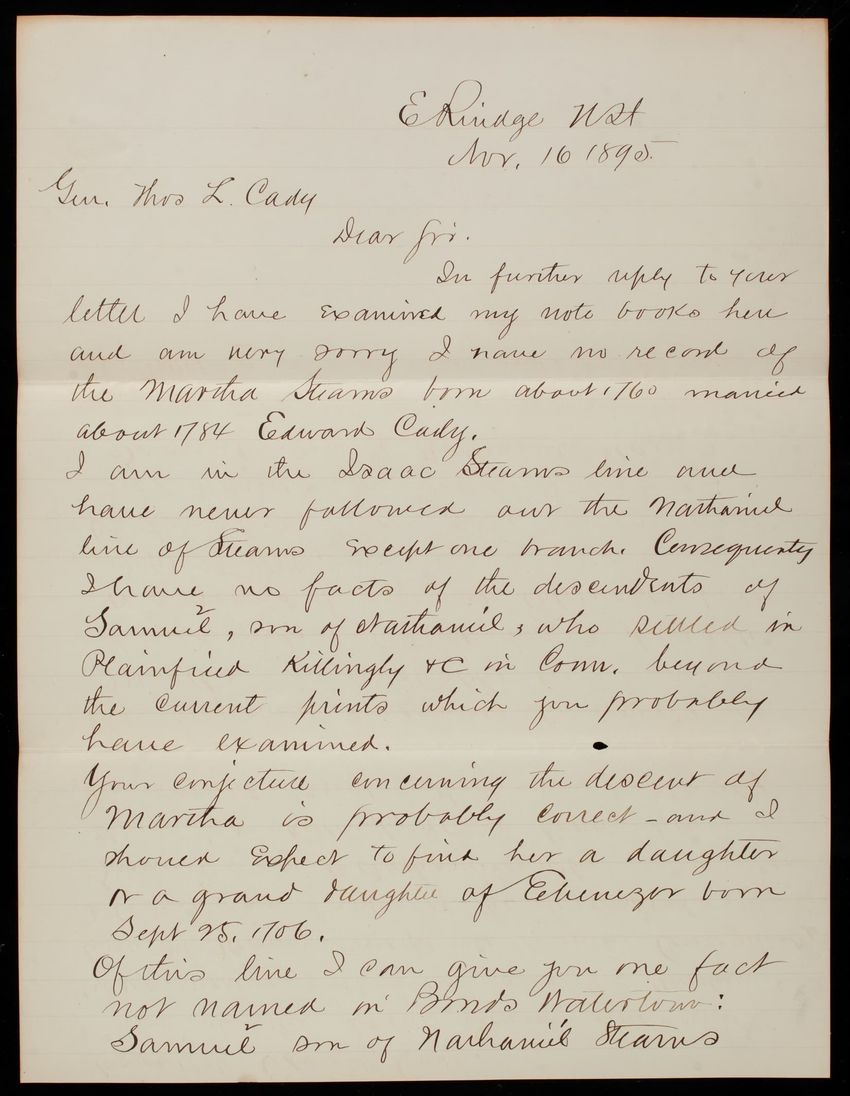 E Rindge N H
Nov. 16 1895.
Gen. Thos L. Cady
Dear Sir.
In further reply to your
letter I have examined my note books here
and am very sorry I have no record of
the Martha Stearns born about 1760 married
about 1784 Edward Cady.
I am in the Isaac Stearns line and
have never followed out the Nathaniel
line of Stearns except one branch. Consequently
I have no facts of the descendents of
Samuel2, son of Nathaniel, who settled in
Plainfield Killingly &c in Conn. beyond
the current prints which you probably
have examined.
Your conjecture concerning the descent of
Martha is probably correct - and I
should expect to find her a daughter
or a grand daughter of Ebenezer born
Sept 25, 1706.
Of this line I can give you one fact
not named in Bonds Watertown:
Samuel2 son of Nathaniel1 Stearns